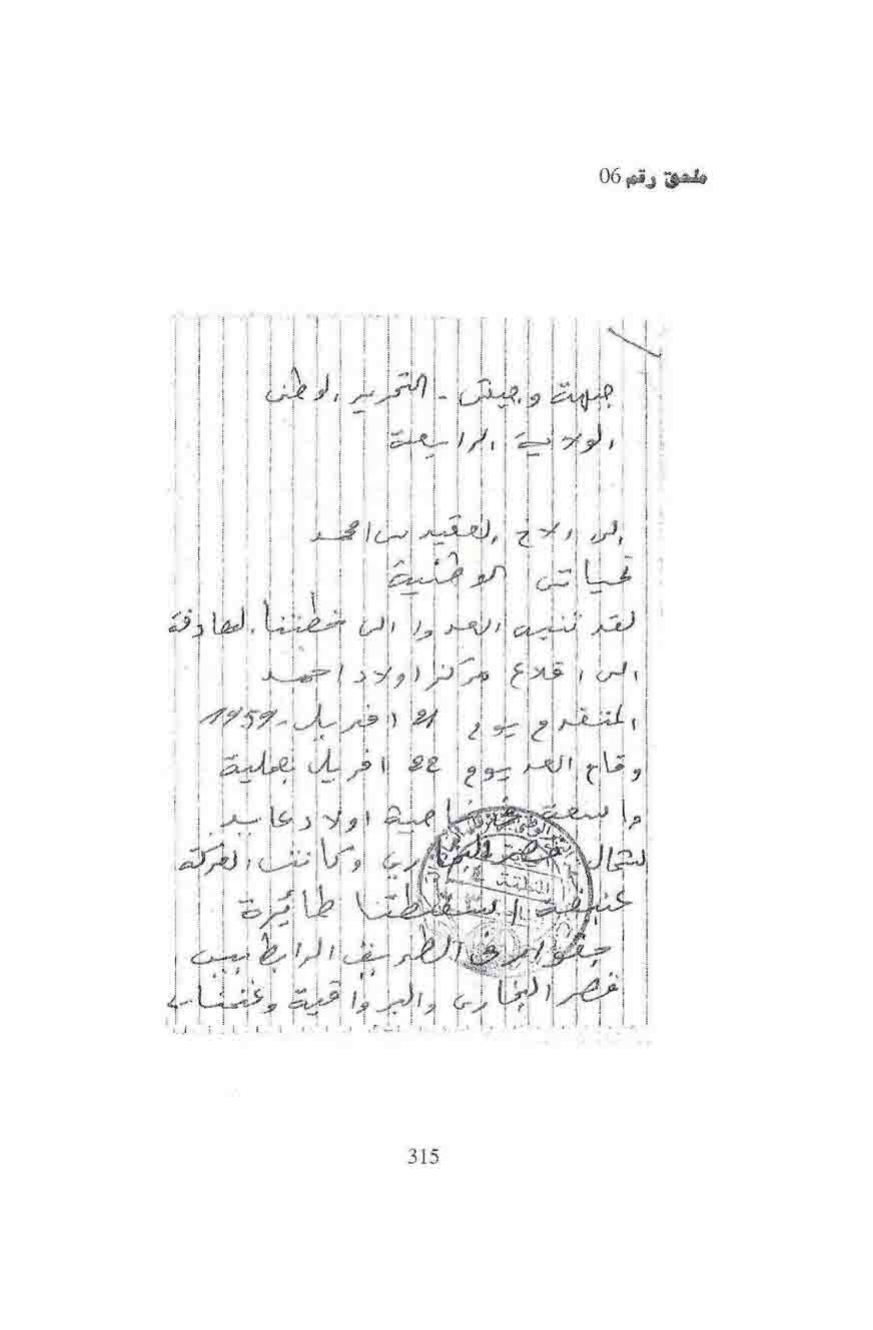 ملحق رقم 06
جبهة وجيش - التحرير الوطني
الولاية الرابعة
إلى الاخ العقيد سي امحمد
تحياتي الوطنية
لقد تنبه العدوا الى خطتنا الهادفة
الى اقلاع مركز اولاد احمد
المتقدم يوم 21 افريل - 1959
وقام العد يوم 22 افريل بعملية
واسعة ناحية اولاد عابد
لشمال قصر البخاري وكانت المعركة
عنيفة اسقطتنا طائرة
في الطريق الرابط بين
قصر البخاري والبرواقية وغنمنا
315